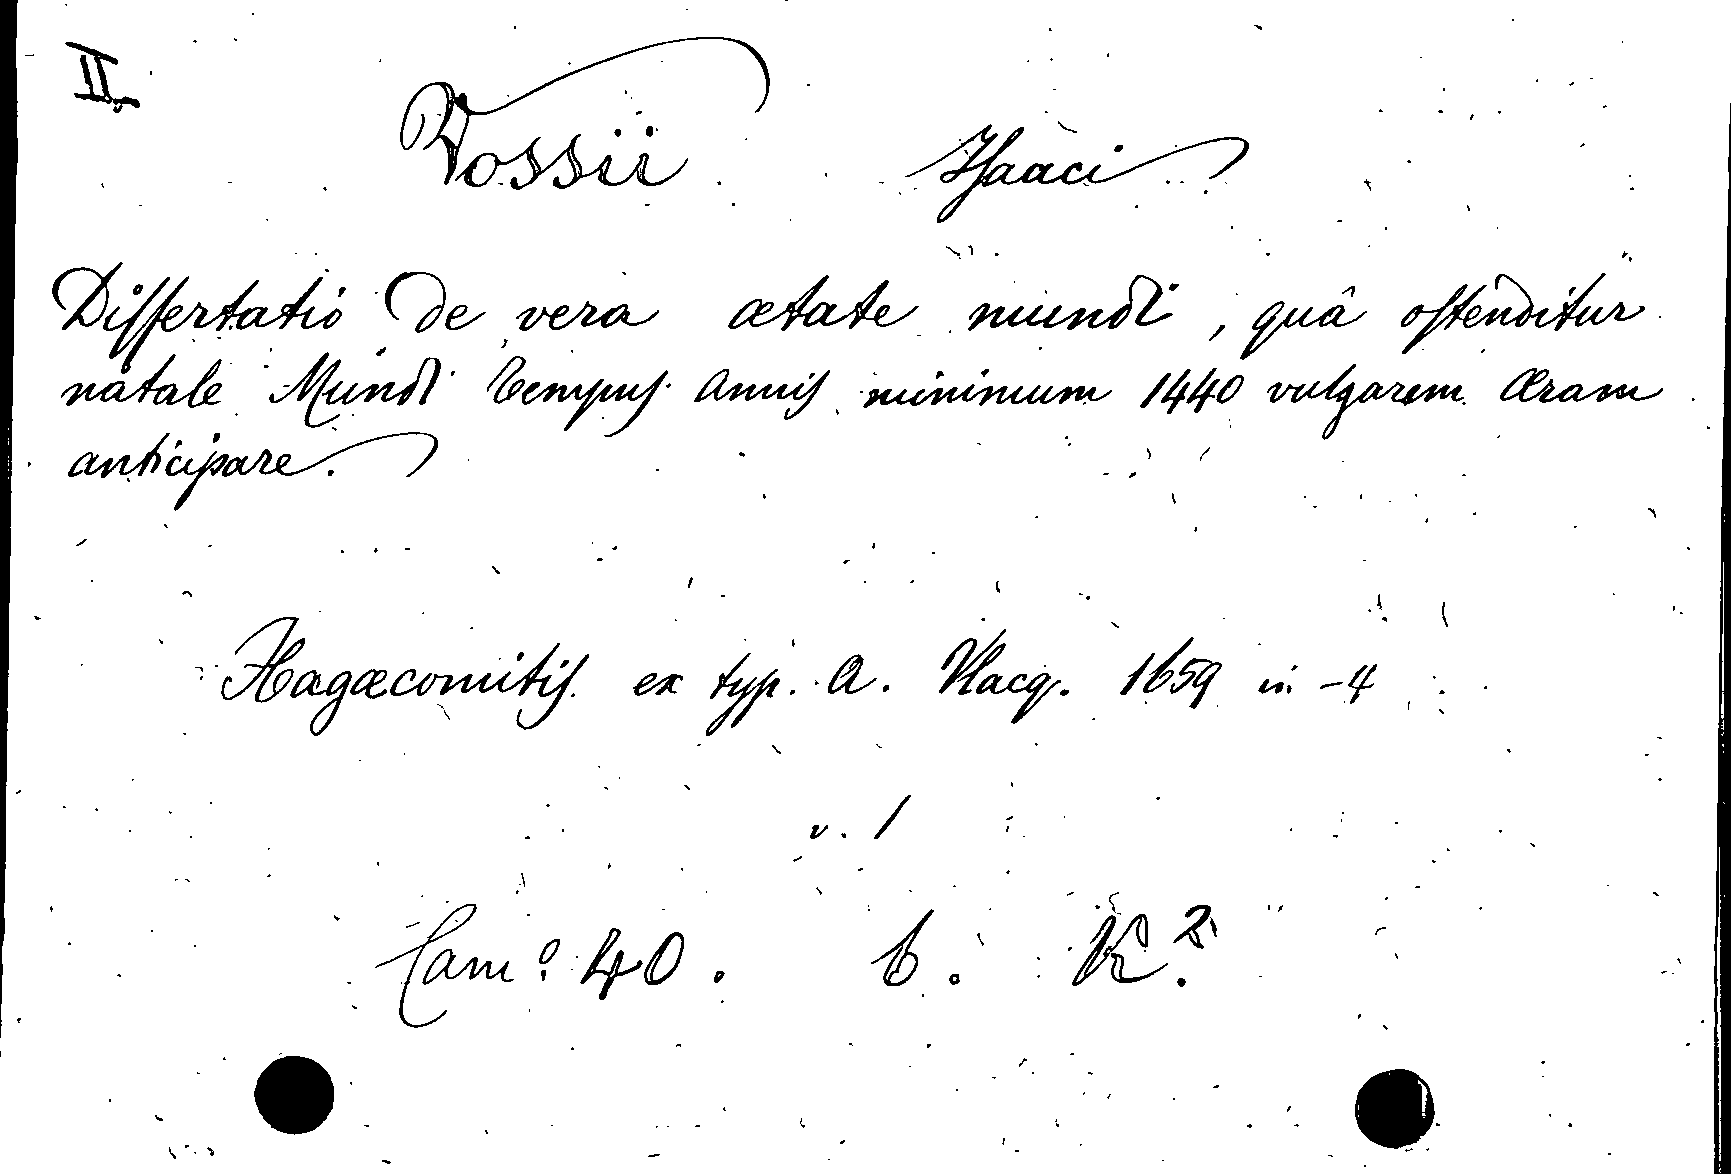 II.
Vossii Isaaci
Dissertatio de vera ætate mundi, quâ ostenditur
natale Mundi tempus annis minimum 1440 vulgarem æram
anticipare.
Hagæcomitis ex typ. A. Vlacq. 1659 in-4
v. 1
Cam.º 40. b. K.2